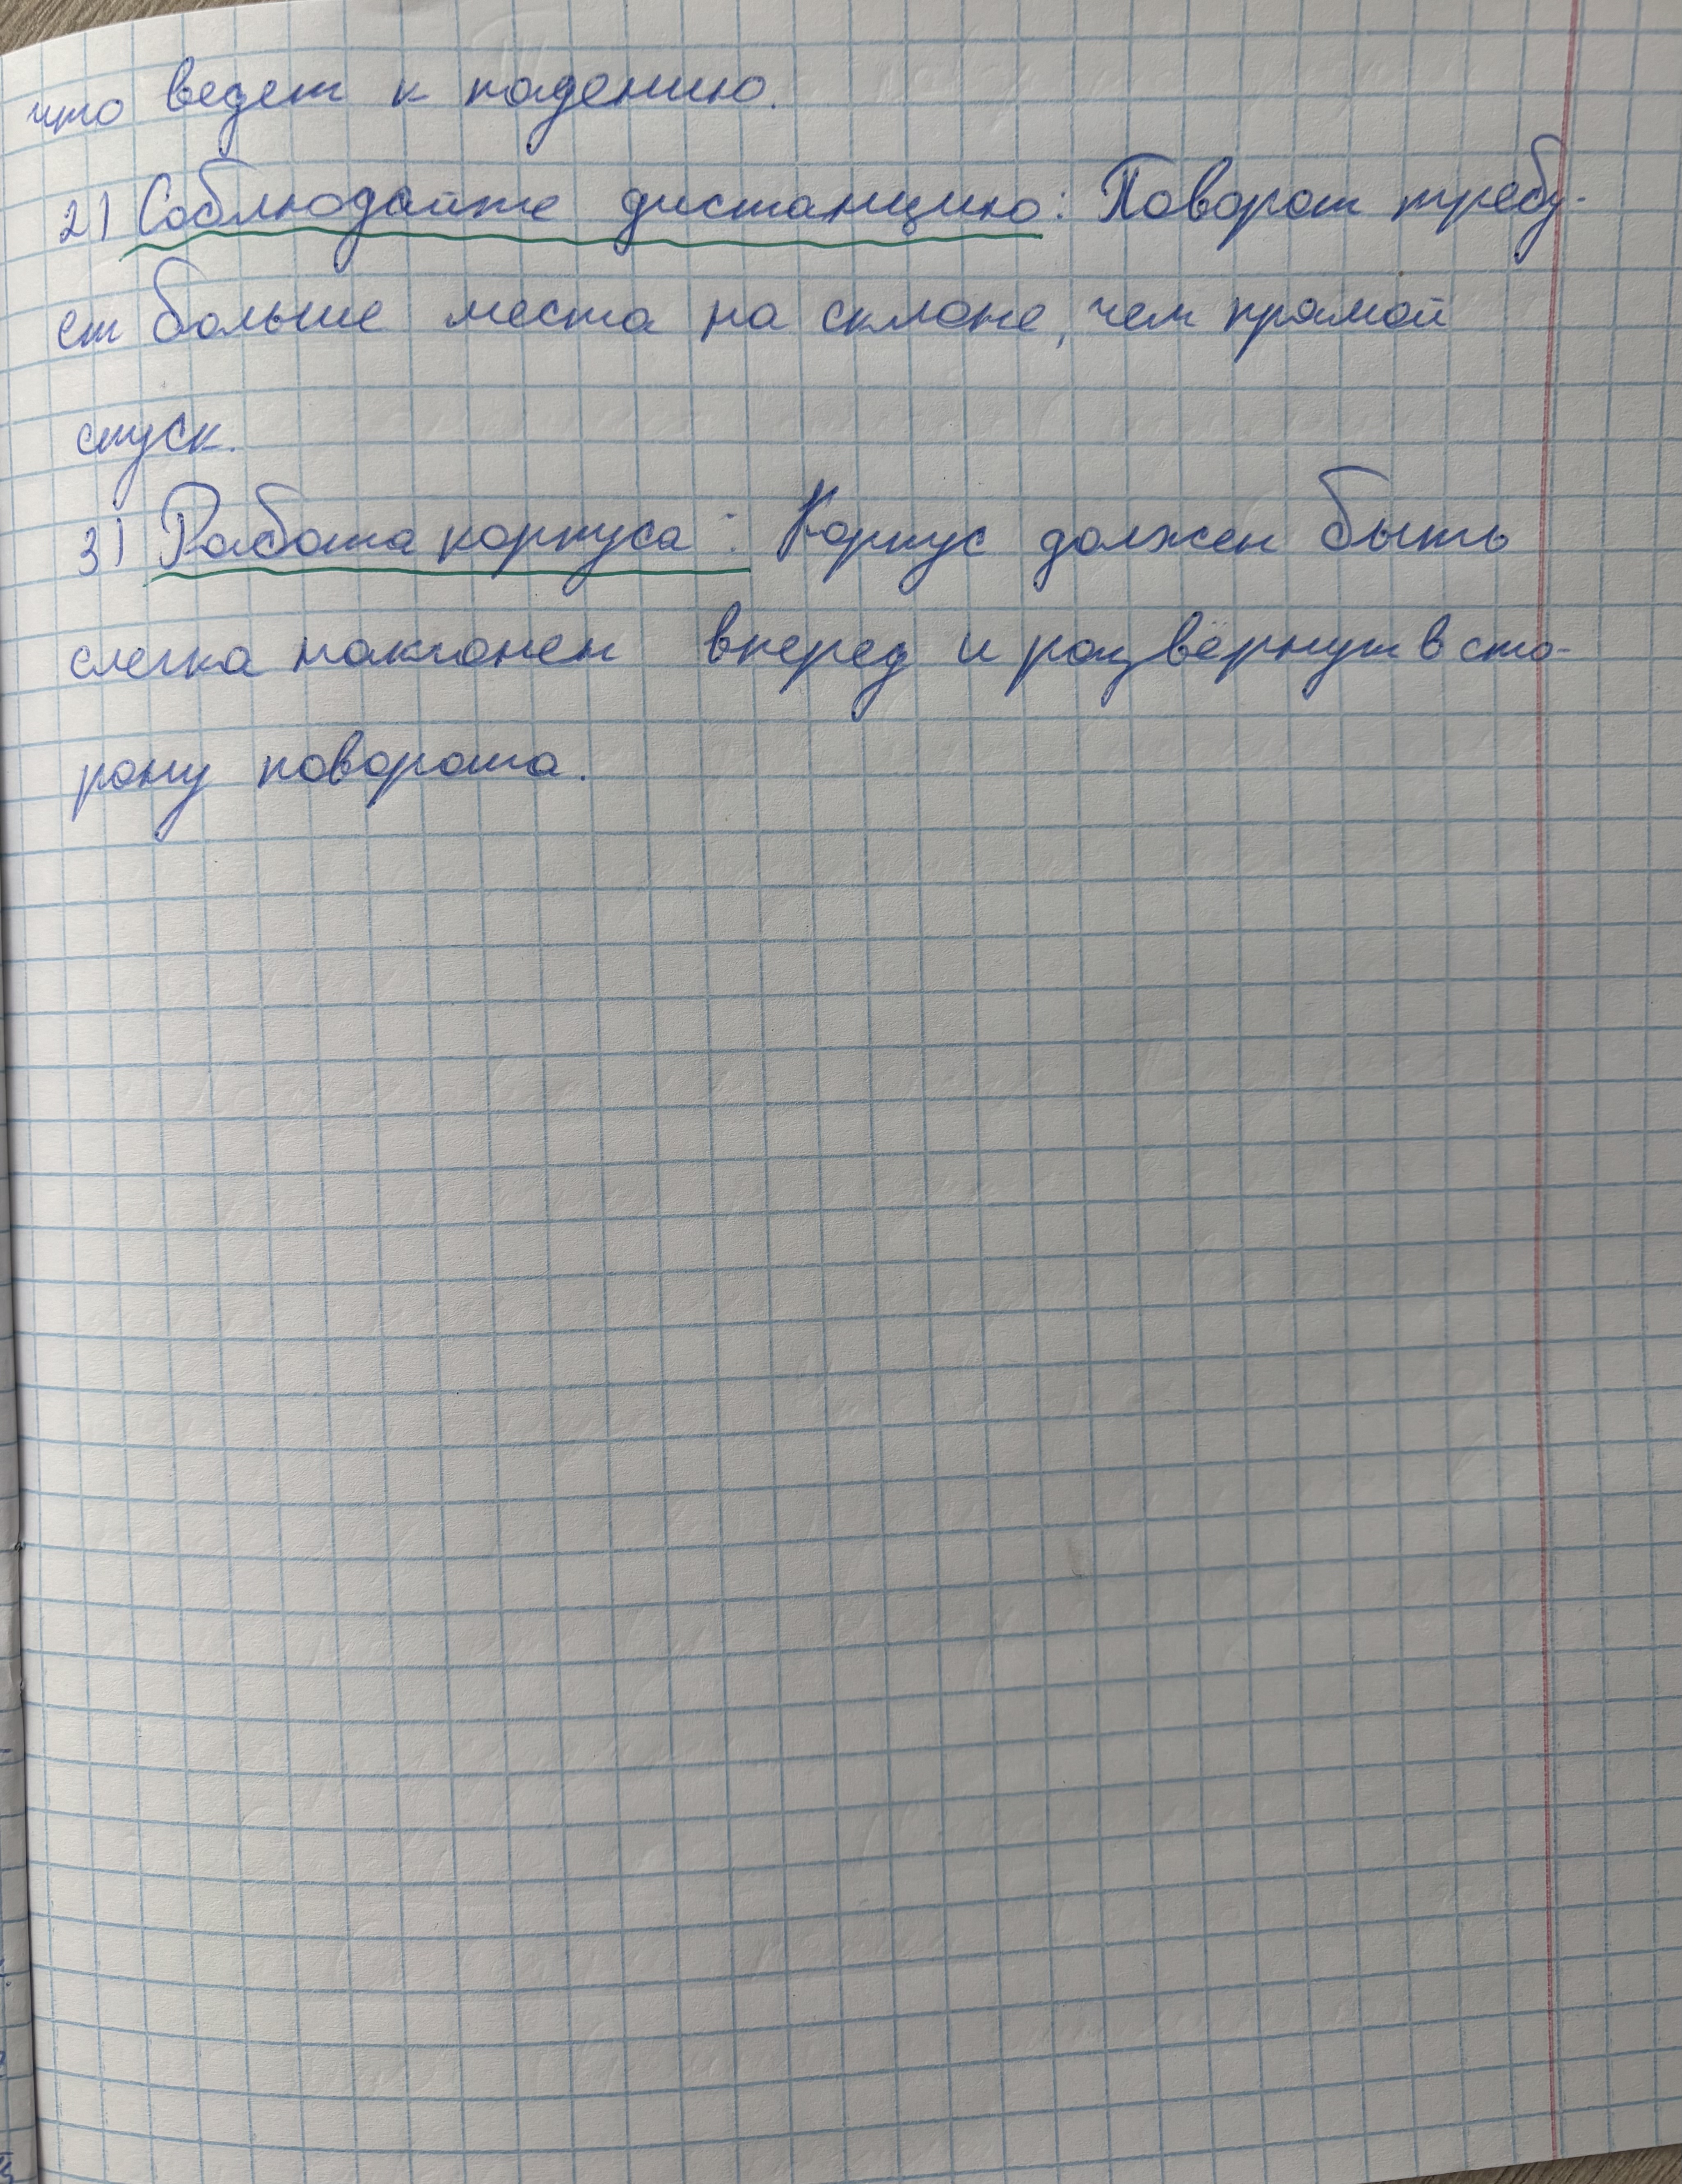 что ведет к падению.
2) Соблюдайте дистанцию: Поворот требу-
ет больше места на склоне, чем прямой
спуск.
3) Работа корпуса: Корпус должен быть
слегка наклонен вперед и развёрнут в сто-
рону поворота.